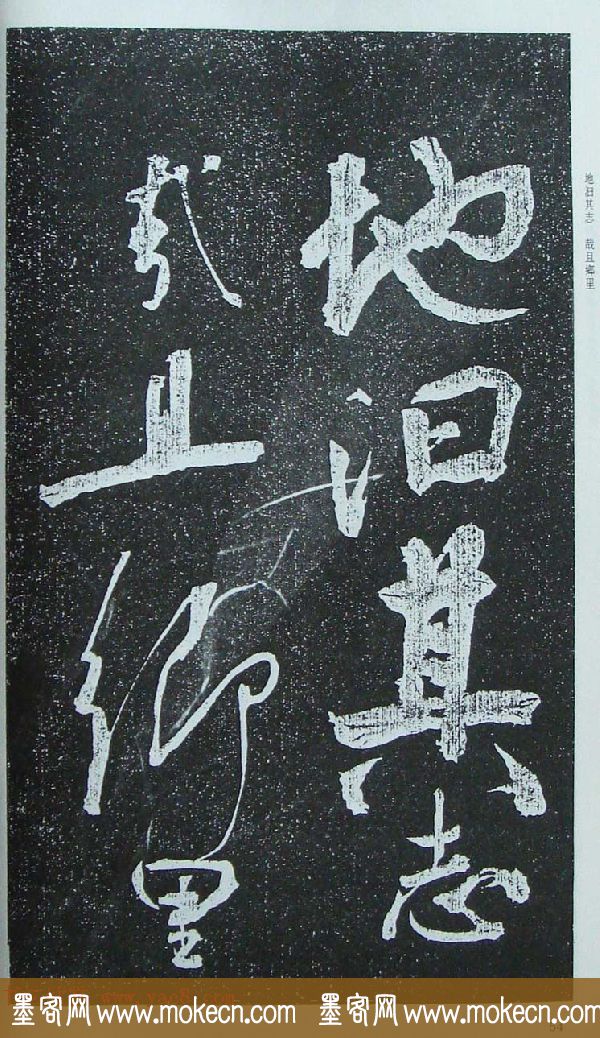 地汩其志　哉且鄉里
地汩其志
哉且鄉里
墨客网 www.mokecn.com 墨客网 www.mokecn.com
54